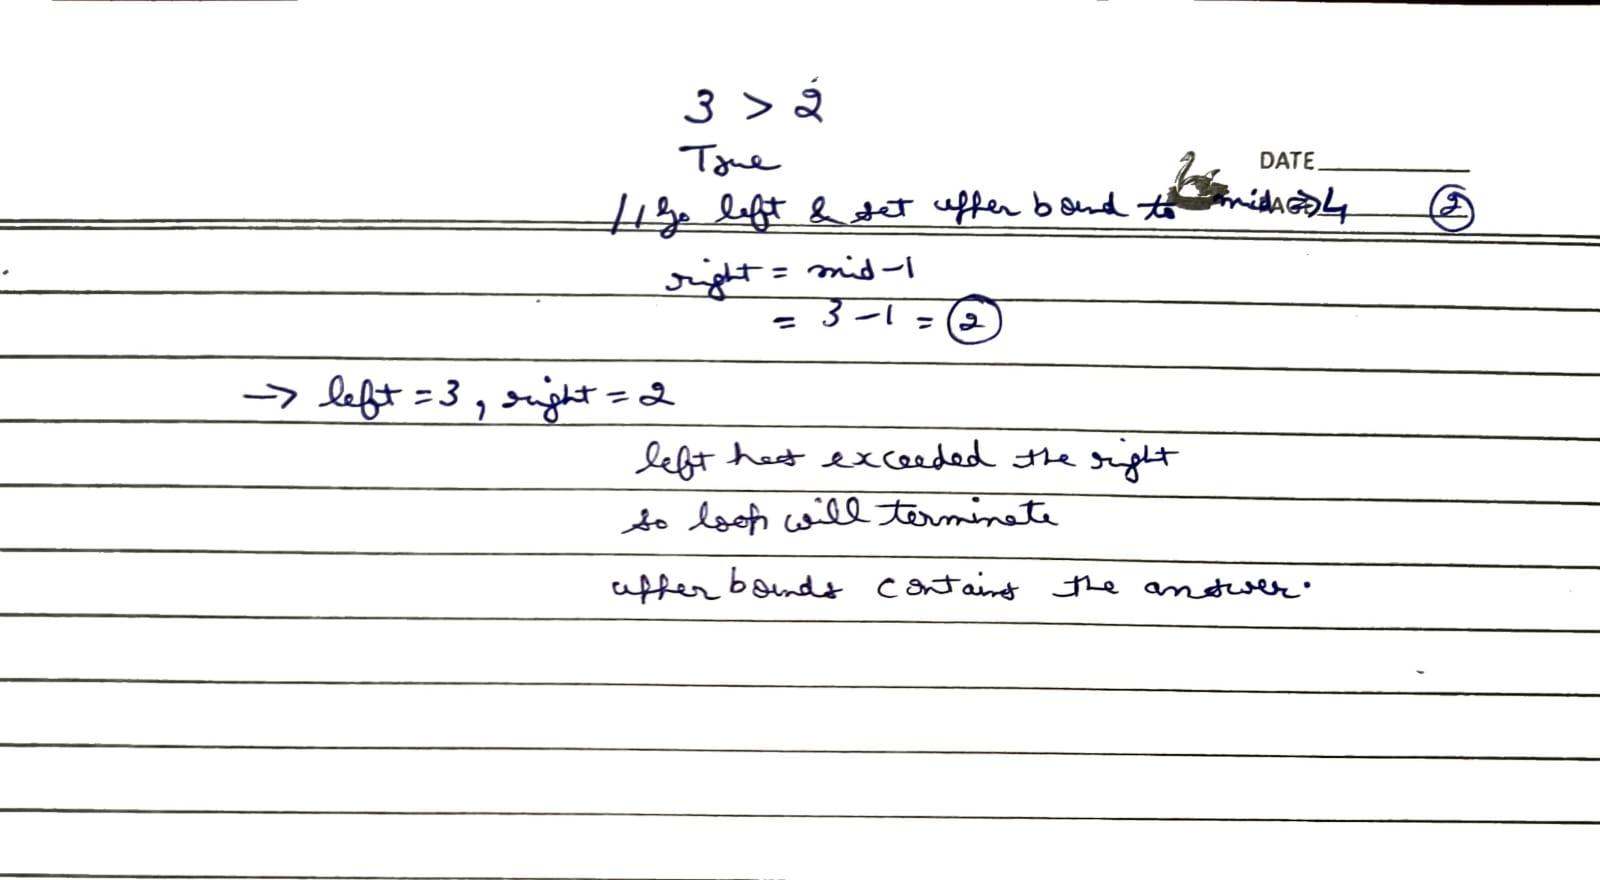 3 > 2
True
DATE
// Go left & set upper bound to mid => 4 2
right = mid-1
= 3-1 = 2
-> left = 3, right = 2
left has exceeded the right
so loop will terminate
upper bounds contains the answer.